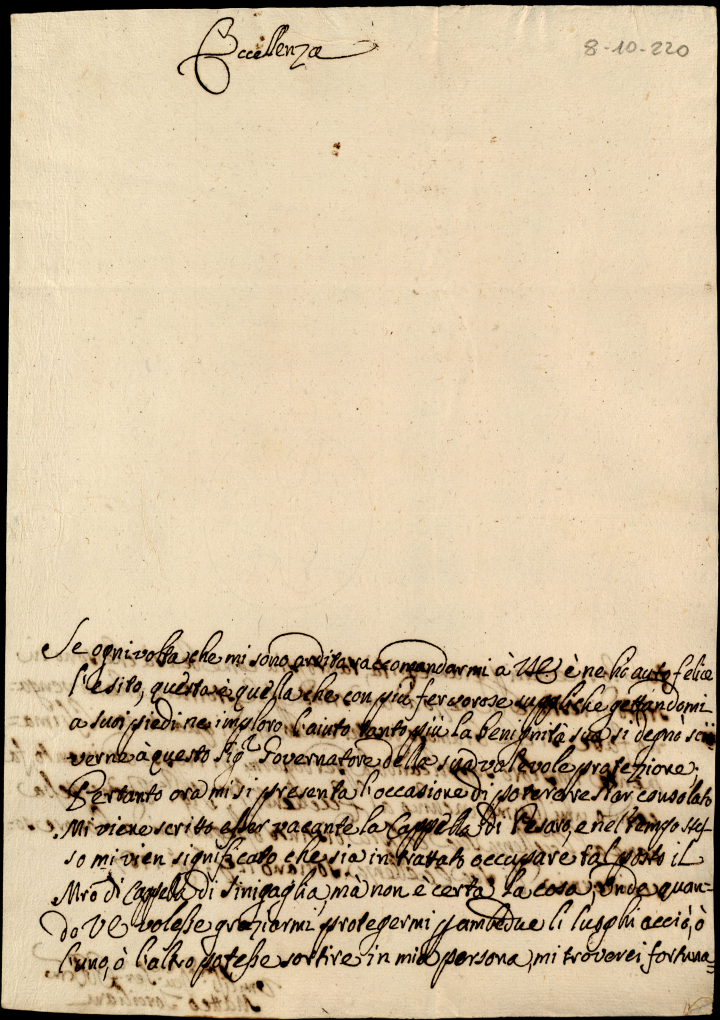 Eccellenza
8-10-220
Se ogni volta che mi sono ardita raccomandarmi à VE è ne hò auto felice
l'esito, questa è quella che con più fervorose suppliche gettandomi
a suoi piedi ne imploro l'aiuto tanto più la benignità sua si degnò scri
verne à questo Sigr Governatore della sua valevole protezione.
Pertanto ora mi si presenta l'occasione di potere restar consolato
Mi viene scritto esser vacante la Cappella di Pesaro, e nel tempo stes
so mi vien significato che sia in trattato occupare tal posto il
Mro di Cappella di Sinigaglia, mà non è certa la cosa; Onde quan=
do VE volesse graziarmi proteggermi p ambedue li luoghi acciò, ò
l'uno, ò l'altro potesse sortire in mia persona, mi troverei fortuna=